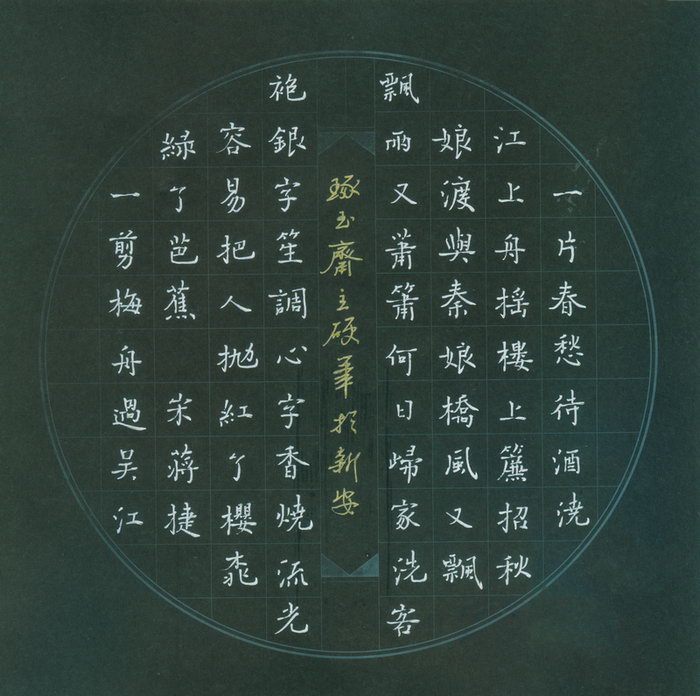 一片春愁待酒澆
江上舟搖樓上簾招秋
娘渡與秦娘橋風又飄
飄雨又蕭簫何日歸家洗客
琢玉齋主硬筆於新安
袍銀字笙調心字香燒流光
容易把人拋紅了櫻桃
綠了芭蕉 宋蔣捷
一剪梅舟過吴江